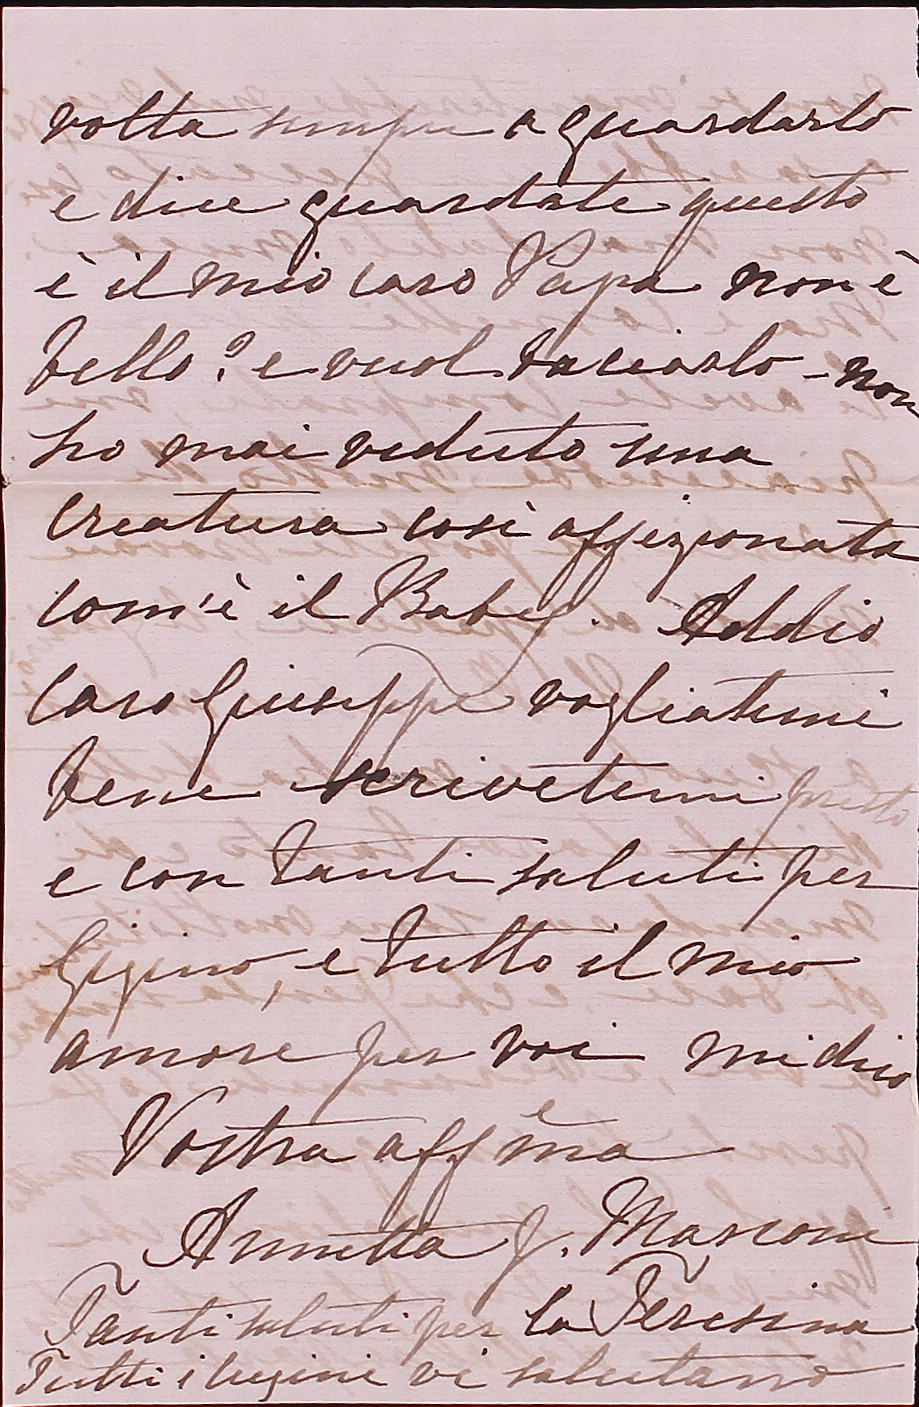 volta sempre a guardarlo
e dice guardate questo
è il mio caro Papa non è
bello? e vuol baciarlo - non
ho mai veduto una
creatura così affezionata
com'è il Baby. Addio
caro Giuseppe vogliatemi
bene scrivetemi presto
e con tanti saluti per
Gigino, e tutto il mio
amore per voi mi dico
Vostra affema
Annetta J. Marconi
Tanti saluti per la Teresina
Tutti i cugini vi salutano